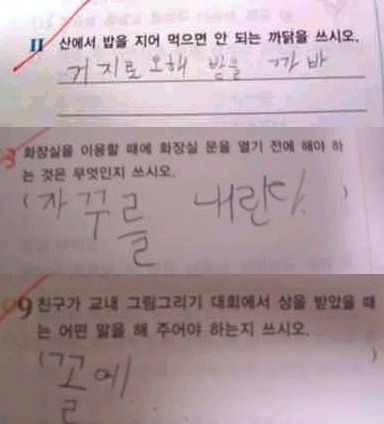 11 산에서 밥을 지어 먹으면 안 되는 까닭을 쓰시오.
거지로 오해 받을 까바
3 화장실을 이용할 때에 화장실 문을 열기 전에 해야 하
는 것은 무엇인지 쓰시오.
( 자꾸를 내린다. )
9 친구가 교내 그림그리기 대회에서 상을 받았을 때
는 어떤 말을 해 주어야 하는지 쓰시오.
( 꼴에 )